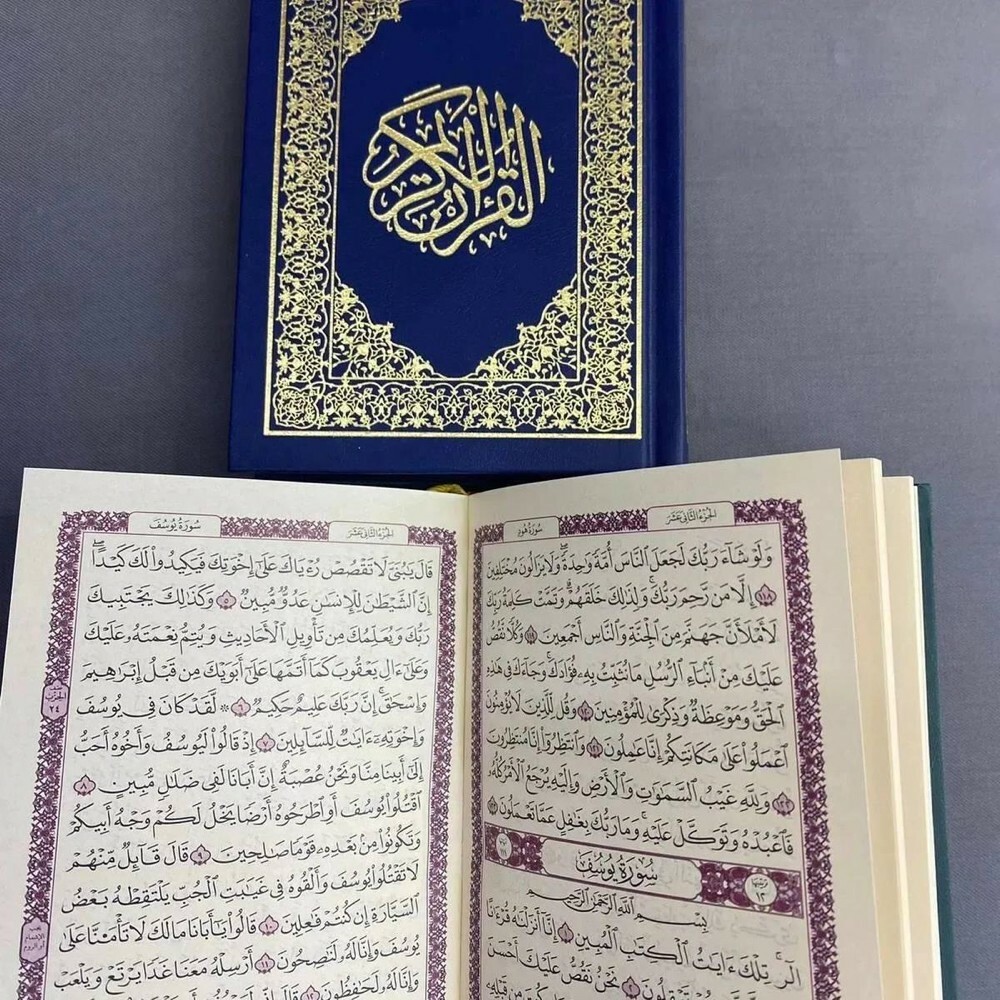 القرآن الكريم
الجزء الثاني عشر
سورة هود
وَلَوْ شَآءَ رَبُّكَ لَجَعَلَ ٱلنَّاسَ أُمَّةً وَٰحِدَةً ۖ وَلَا يَزَالُونَ مُخْتَلِفِينَ
١١٨ إِلَّا مَن رَّحِمَ رَبُّكَ ۚ وَلِذَٰلِكَ خَلَقَهُمْ ۗ وَتَمَّتْ كَلِمَةُ رَبِّكَ
لَأَمْلَأَنَّ جَهَنَّمَ مِنَ ٱلْجِنَّةِ وَٱلنَّاسِ أَجْمَعِينَ ١١٩ وَكُلًّا نَّقُصُّ
عَلَيْكَ مِنْ أَنۢبَآءِ ٱلرُّسُلِ مَا نُثَبِّتُ بِهِۦ فُؤَادَكَ ۚ وَجَآءَكَ فِى هَٰذِهِ
ٱلْحَقُّ وَمَوْعِظَةٌ وَذِكْرَىٰ لِلْمُؤْمِنِينَ ١٢٠ وَقُل لِّلَّذِينَ لَا يُؤْمِنُونَ
ٱعْمَلُوا۟ عَلَىٰ مَكَانَتِكُمْ إِنَّا عَٰمِلُونَ ١٢١ وَٱنتَظِرُوٓا۟ إِنَّا مُنتَظِرُونَ
١٢٢ وَلِلَّهِ غَيْبُ ٱلسَّمَٰوَٰتِ وَٱلْأَرْضِ وَإِلَيْهِ يُرْجَعُ ٱلْأَمْرُ كُلُّهُۥ
فَٱعْبُدْهُ وَتَوَكَّلْ عَلَيْهِ ۚ وَمَا رَبُّكَ بِغَٰفِلٍ عَمَّا تَعْمَلُونَ ١٢٣
ترتيبها ١٢ سُورَةُ يُوسُفَ
بِسْمِ ٱللَّهِ ٱلرَّحْمَٰنِ ٱلرَّحِيمِ
الٓر ۚ تِلْكَ ءَايَٰتُ ٱلْكِتَٰبِ ٱلْمُبِينِ ١ إِنَّآ أَنزَلْنَٰهُ قُرْءَٰنًا
تَعْقِلُونَ ٢ نَحْنُ نَقُصُّ عَلَيْكَ أَحْسَنَ
كُنتَ مِن قَبْلِهِۦ
الجزء الثاني عشر
سورة يوسف
قَالَ يَٰبُنَىَّ لَا تَقْصُصْ رُءْيَاكَ عَلَىٰٓ إِخْوَتِكَ فَيَكِيدُوا۟ لَكَ كَيْدًا ۖ
إِنَّ ٱلشَّيْطَٰنَ لِلْإِنسَٰنِ عَدُوٌّ مُّبِينٌ ٥ وَكَذَٰلِكَ يَجْتَبِيكَ
رَبُّكَ وَيُعَلِّمُكَ مِن تَأْوِيلِ ٱلْأَحَادِيثِ وَيُتِمُّ نِعْمَتَهُۥ عَلَيْكَ
وَعَلَىٰٓ ءَالِ يَعْقُوبَ كَمَآ أَتَمَّهَا عَلَىٰٓ أَبَوَيْكَ مِن قَبْلُ إِبْرَٰهِيمَ
وَإِسْحَٰقَ ۚ إِنَّ رَبَّكَ عَلِيمٌ حَكِيمٌ ٦ ۞ لَّقَدْ كَانَ فِى يُوسُفَ
وَإِخْوَتِهِۦٓ ءَايَٰتٌ لِّلسَّآئِلِينَ ٧ إِذْ قَالُوا۟ لَيُوسُفُ وَأَخُوهُ أَحَبُّ
إِلَىٰٓ أَبِينَا مِنَّا وَنَحْنُ عُصْبَةٌ إِنَّ أَبَانَا لَفِى ضَلَٰلٍ مُّبِينٍ ٨
ٱقْتُلُوا۟ يُوسُفَ أَوِ ٱطْرَحُوهُ أَرْضًا يَخْلُ لَكُمْ وَجْهُ أَبِيكُمْ
وَتَكُونُوا۟ مِنۢ بَعْدِهِۦ قَوْمًا صَٰلِحِينَ ٩ قَالَ قَآئِلٌ مِّنْهُمْ
لَا تَقْتُلُوا۟ يُوسُفَ وَأَلْقُوهُ فِى غَيَٰبَتِ ٱلْجُبِّ يَلْتَقِطْهُ بَعْضُ
ٱلسَّيَّارَةِ إِن كُنتُمْ فَٰعِلِينَ ١٠ قَالُوا۟ يَٰٓأَبَانَا مَا لَكَ لَا تَأْمَ۫نَّا عَلَىٰ
يُوسُفَ وَإِنَّا لَهُۥ لَنَٰصِحُونَ ١١ أَرْسِلْهُ مَعَنَا غَدًا يَرْتَعْ وَيَلْعَبْ
وَإِنَّا لَهُۥ لَحَٰفِظُونَ ١٢ قَالَ إِنِّى
الحزب
٢٤